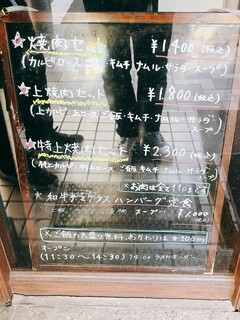 焼肉セット ¥1,400(税込)
(カルビ ロース・ご飯・キムチ ナムル・サラダ スープ)
上焼肉セット ¥1,800(税込)
(上カルビ 上ロース ご飯・キムチ・ナムル・サラダ・
スープ)
特上焼肉セット ¥2,300(税込)
(特上カルビ 特上ロース ご飯 キムチ ナムル サラダ
スープ)
※お肉は全て110gです
和牛すきヤクス ハンバーグ定食
スープ ¥1,000
(税込)
※ご飯の大盛り無料、おかわりは+100円
オープン
(11:30〜14:30) 14:00 ラストオーダー